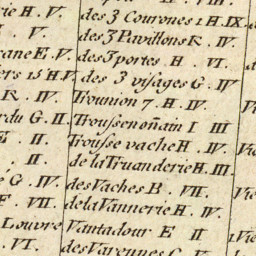 rie H. V. des 3 Couronnes 1 H. IX.
. V. des 3 Pavillons R. IV.
rane E. V. des 3 portes H. VI.
ers 15 H. V. des 3 visages G. IV
R. IV. Trounion 7. H. IV.
du G. II. Troussenoñain I III
E. II. Trousse vache H. IV.
II. de la Truanderie H. III.
é G. IV. des Vaches B. VII.
F. VII. de la Vannerie H. IV.
Louvre Vantadour E II
. VI. des Varennes C. V